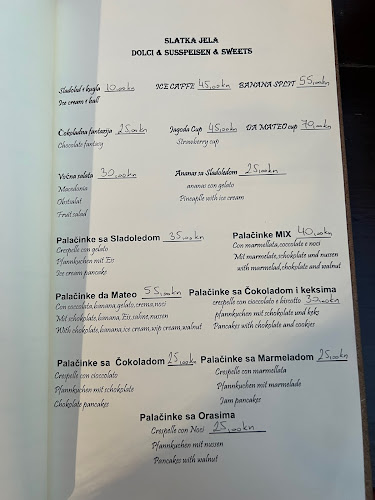 SLATKA JELA
DOLCI & SUSSPEISEN & SWEETS
Sladoled 1 kugla 10,00kn
Ice cream 1 ball
ICE CAFFE 45,00kn
BANANA SPLIT 55,00kn
Čokoladna fantazija 25,00kn
Chocolate fantasy
Jagoda Cup 45,00kn
Strawberry cup
DA MATEO cup 70,00kn
Voćna salata 30,00kn
Macedonia
Obstsalat
Fruit salad
Ananas sa Sladoledom 25,00kn
ananas con gelato
Pineaplle with ice cream
Palačinke sa Sladoledom 35,00kn
Crespelle con gelato
Pfannkuchen mit Eis
Ice cream pancake
Palačinke MIX 40,00kn
Con marmellata,coccolate e noci
Mit marmelade,schokolade und nussen
with marmelad,chokolate and walnut
Palačinke da Mateo 55,00kn
Con coccolata,banana,gelato,crema,noci
Mit schokolate,banana,Eis,sahne,nussen
With chokolate,banana,ice cream,wip cream,walnut
Palačinke sa Čokoladom i keksima
crespelle con cioccolato e biscotto 37,00kn
pfannkuchen mit schokolate und keks
Pancakes with chokolate and cookies
Palačinke sa Čokoladom 25,00kn
Crespelle con cioccolato
Pfannkuchen mit schokolate
Chokolate pancakes
Palačinke sa Marmeladom 25,00kn
Crespelle con marmellata
Pfannkuchen mit marmelade
Jam pancakes
Palačinke sa Orasima
Crespelle con Noci 25,00kn
Pfannkuchen mit nussen
Pancakes with walnut